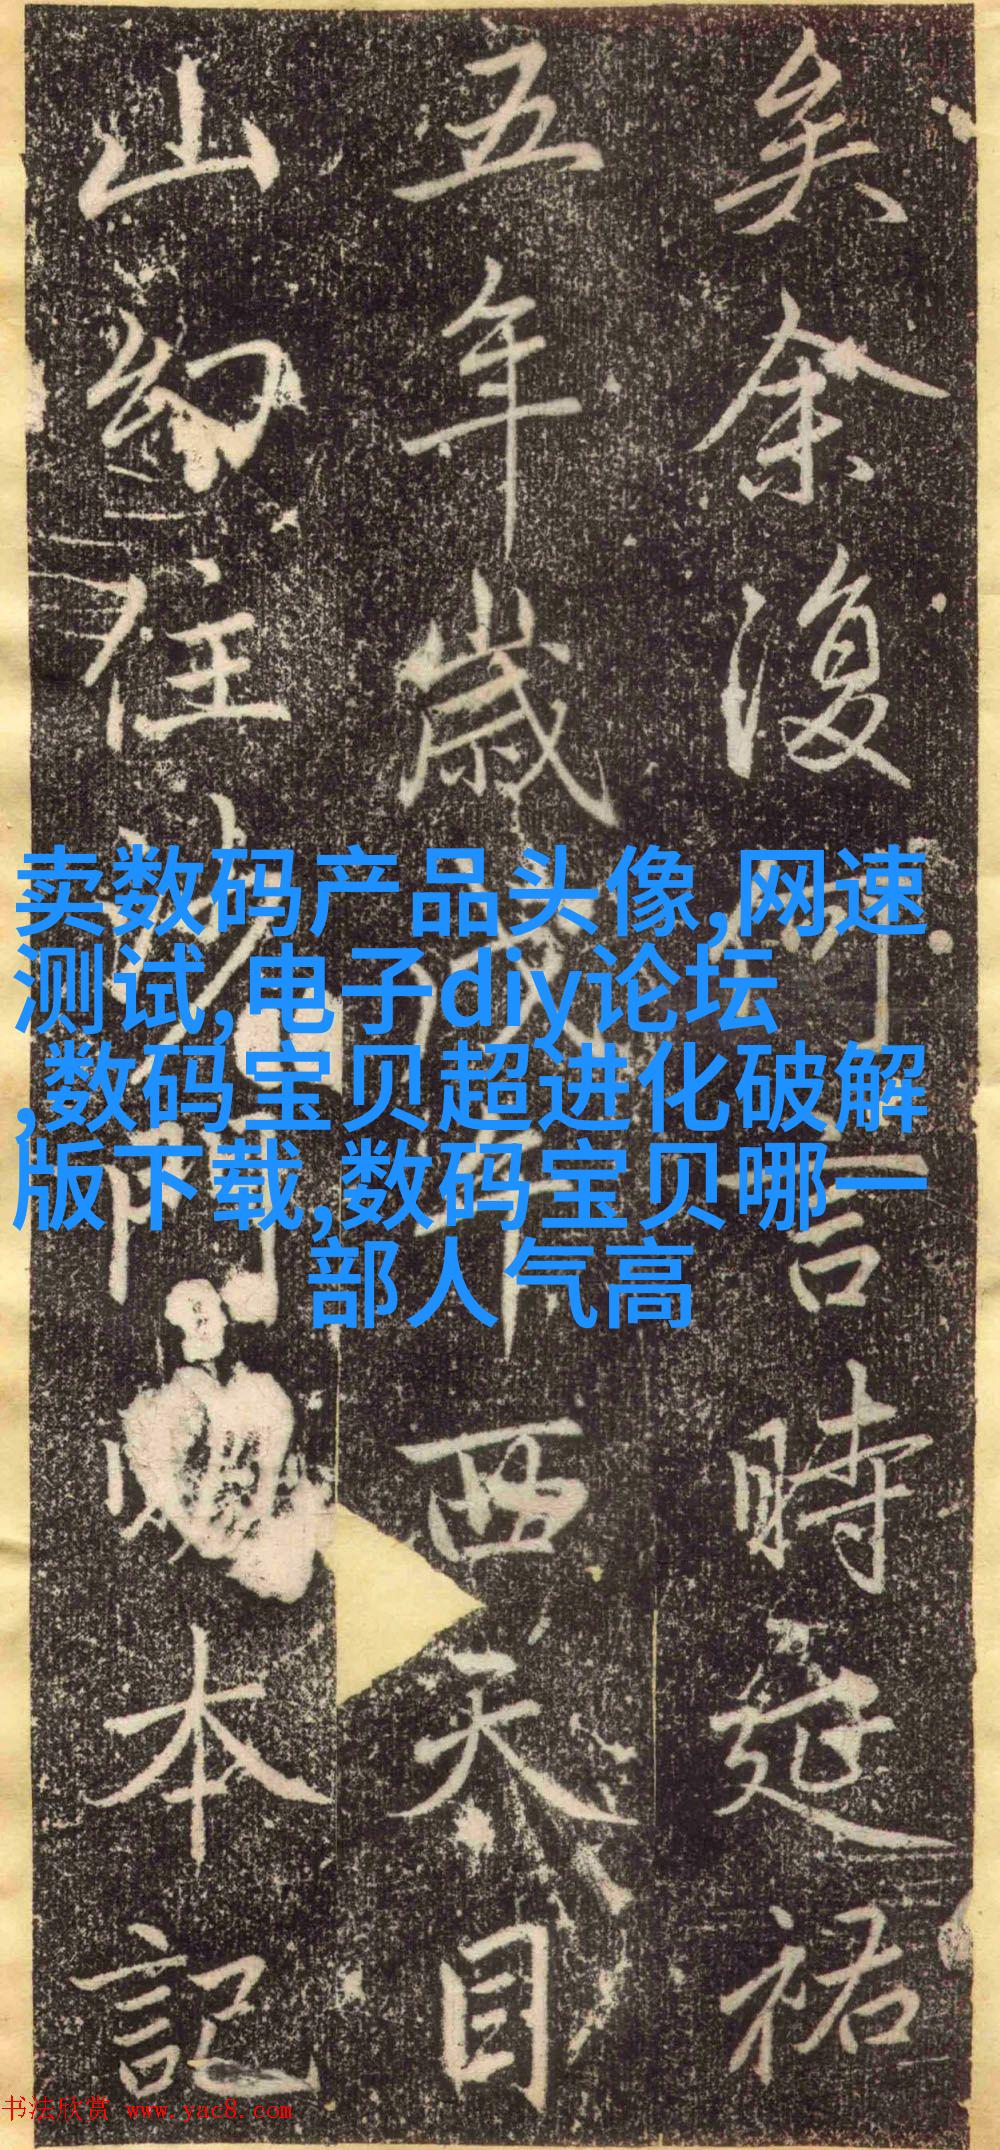 矣余復何言時延祐
五年歲戊午西天目
山幻住沙門本記
卖数码产品头像,网速
测试,电子diy论坛
,数码宝贝超进化破解
版下载,数码宝贝哪一
部人气高
书法欣赏 www.yac8.com